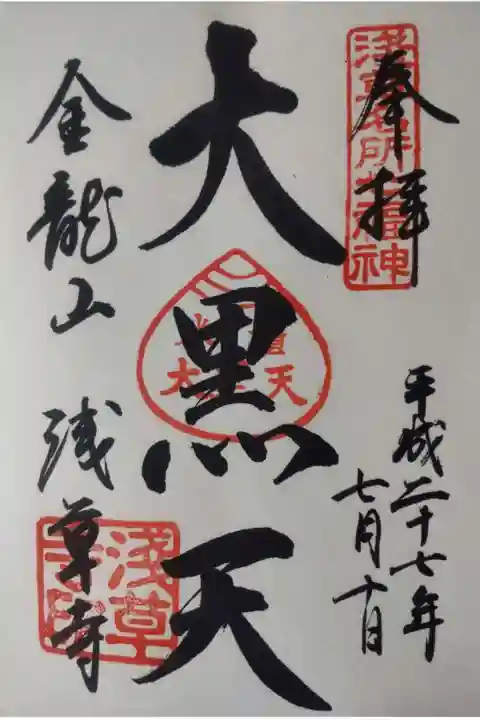 奉拝
浅草名所七福神
平成二十七年
七月十日
大黒天
金龍山 浅草寺
浅草寺印